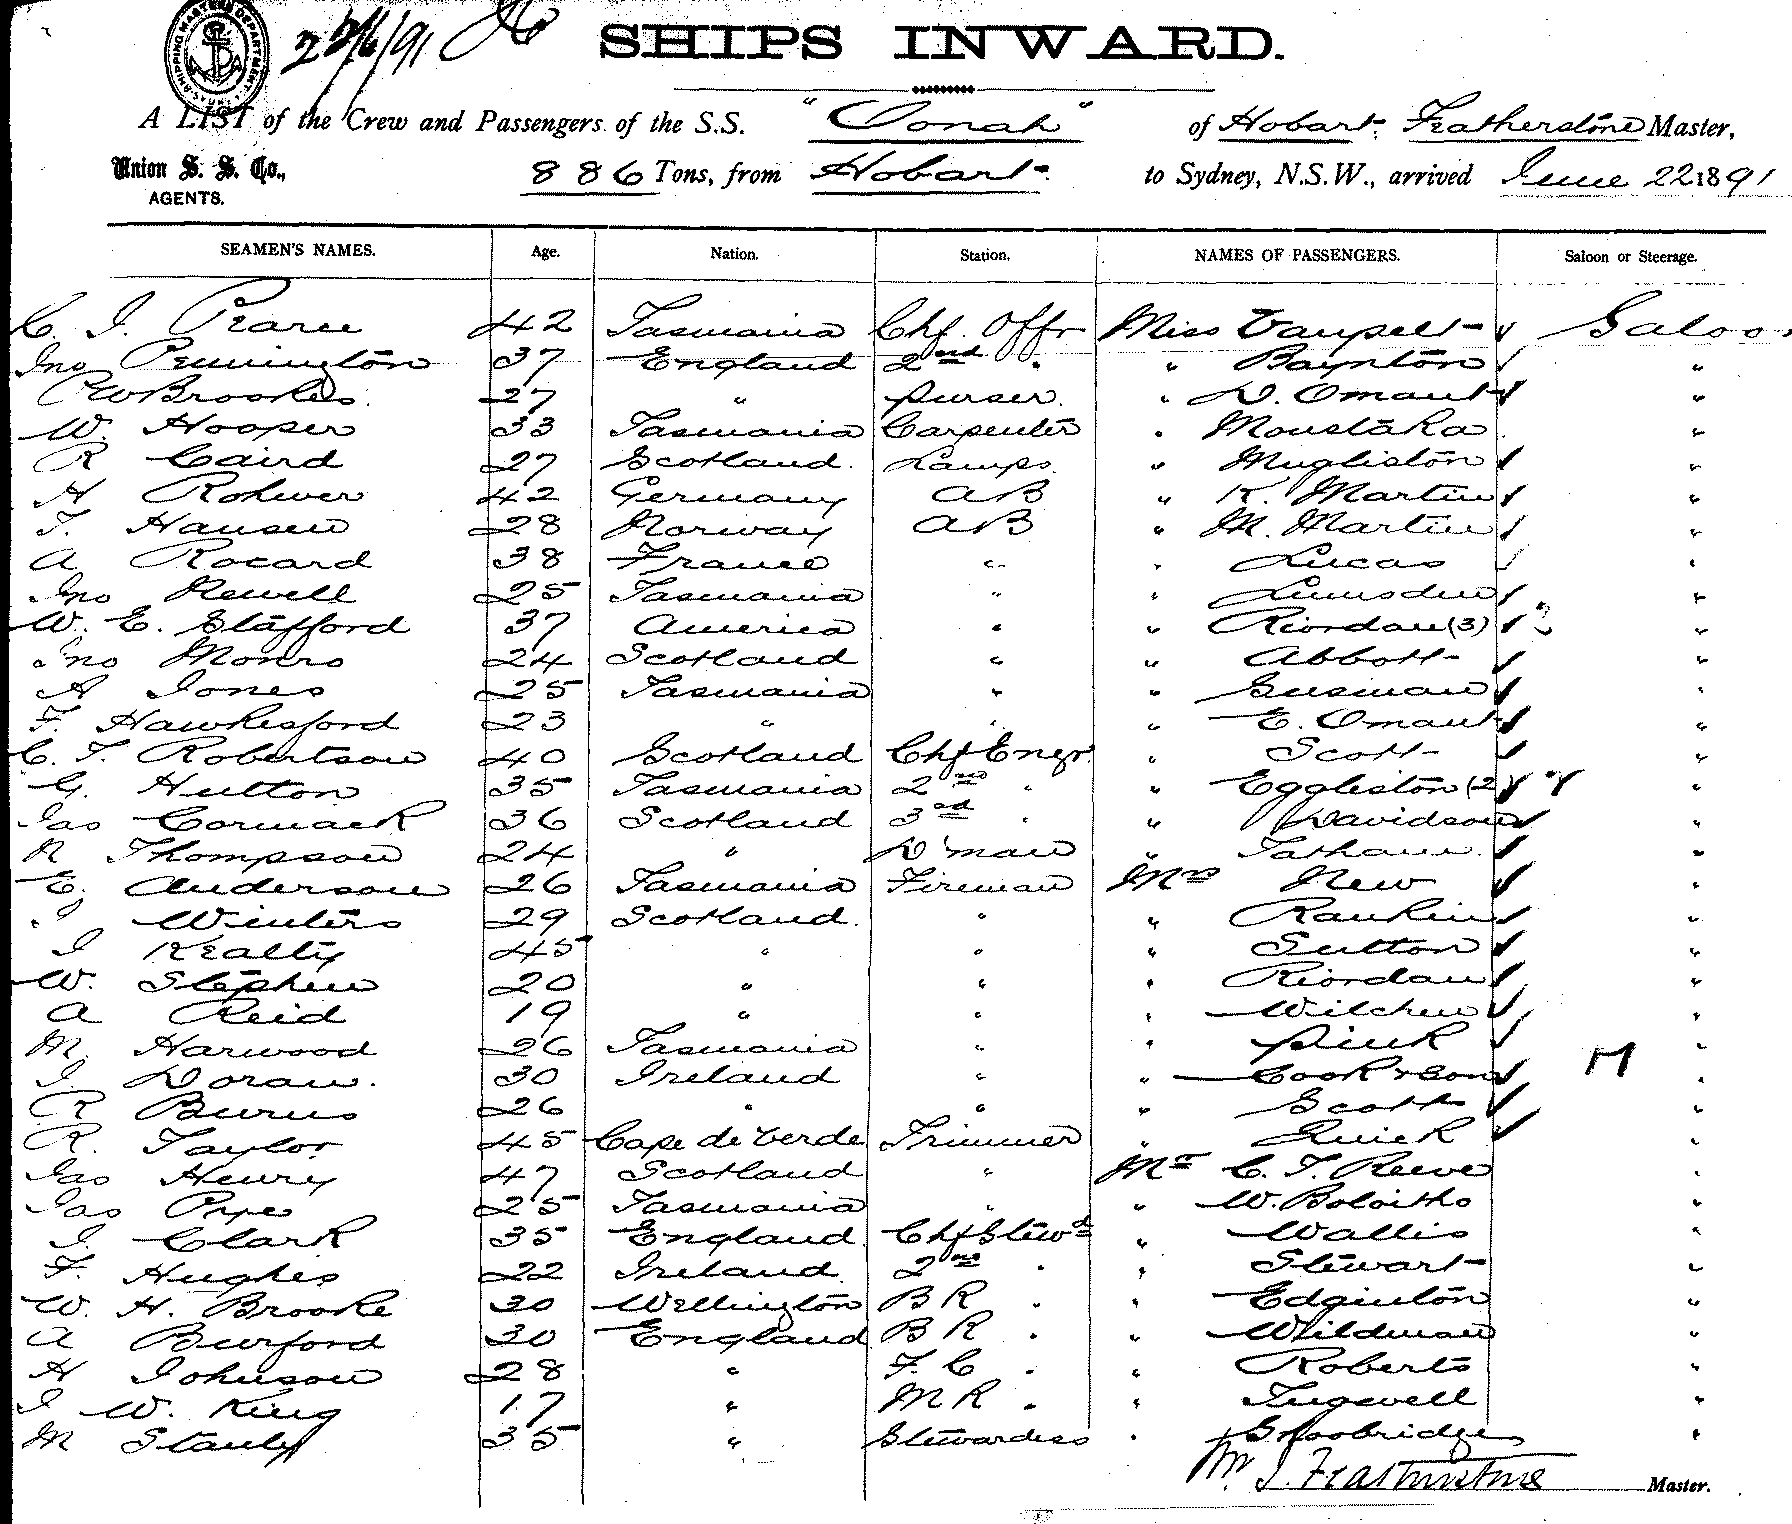 22/6/91
SHIPS INWARD.
A LIST of the Crew and Passengers of the S.S. "Oonah" of Hobart, Featherstone Master,
Union S. S. Co., 886 Tons, from Hobart to Sydney, N.S.W., arrived June 22 1891
AGENTS.
SEAMEN'S NAMES. Age. Nation. Station. NAMES OF PASSENGERS. Saloon or Steerage.
C. J. Pearce 42 Tasmania Chf. Offr Miss Vaupelt Saloon
Jno Pennington 37 England 2nd " " Baynton "
Brookes 27 " Purser " D. Omant "
W. Hooper 33 Tasmania Carpenter " Moustaka "
R Caird 27 Scotland Lamps " Mugliston "
H Rohwer 42 Germany AB " K. Martin "
T. Hansen 28 Norway AB " M. Martin "
A Rocard 38 France " " Lucas "
Jno Newell 25 Tasmania " " Lumsden "
W. E. Stafford 37 America " " Riordan (3) "
Jno Monro 24 Scotland " " Abbott "
A Jones 25 Tasmania " " Susman "
F. Hawkesford 23 " " " E. Omant "
C. T. Robertson 40 Scotland Chf Engr. " Scott "
G. Hutton 35 Tasmania 2nd " " Eggleston (2) "
Jas Cormack 36 Scotland 3rd " " Davidson "
R Thompson 24 " D'man " Tatham "
E. Anderson 26 Tasmania Fireman Mrs New "
J Winters 29 Scotland " " Rankin "
J Kealty 45 " " " Sutton "
W. Stephen 20 " " " Riordan "
A Reid 19 " " " Wilchen "
M. Harwood 26 Tasmania " " Pink "
J. Doran. 30 Ireland " " Cook & Son M "
R Burns 26 " " " Scott "
R. Taylor 45 Cape de Verde Trimmer " Quick "
Jas Henry 47 Scotland " Mr C. T. Reeve "
Jas Pype 25 Tasmania " " W. Boloitho "
J. Clark 35 England Chf Stewd " Wallis "
F. Hughes 22 Ireland 2nd " " Stewart "
W. H. Brooke 30 Wellington B R " " Edginton "
A Burford 30 England B R " " Wildman "
H Johnson 28 " F. C " " Roberts "
J W. King 17 " M R " " Tugwell "
M Stanly 35 " Stewardess " Shoobridge "
Wm. J. Featherstone Master.